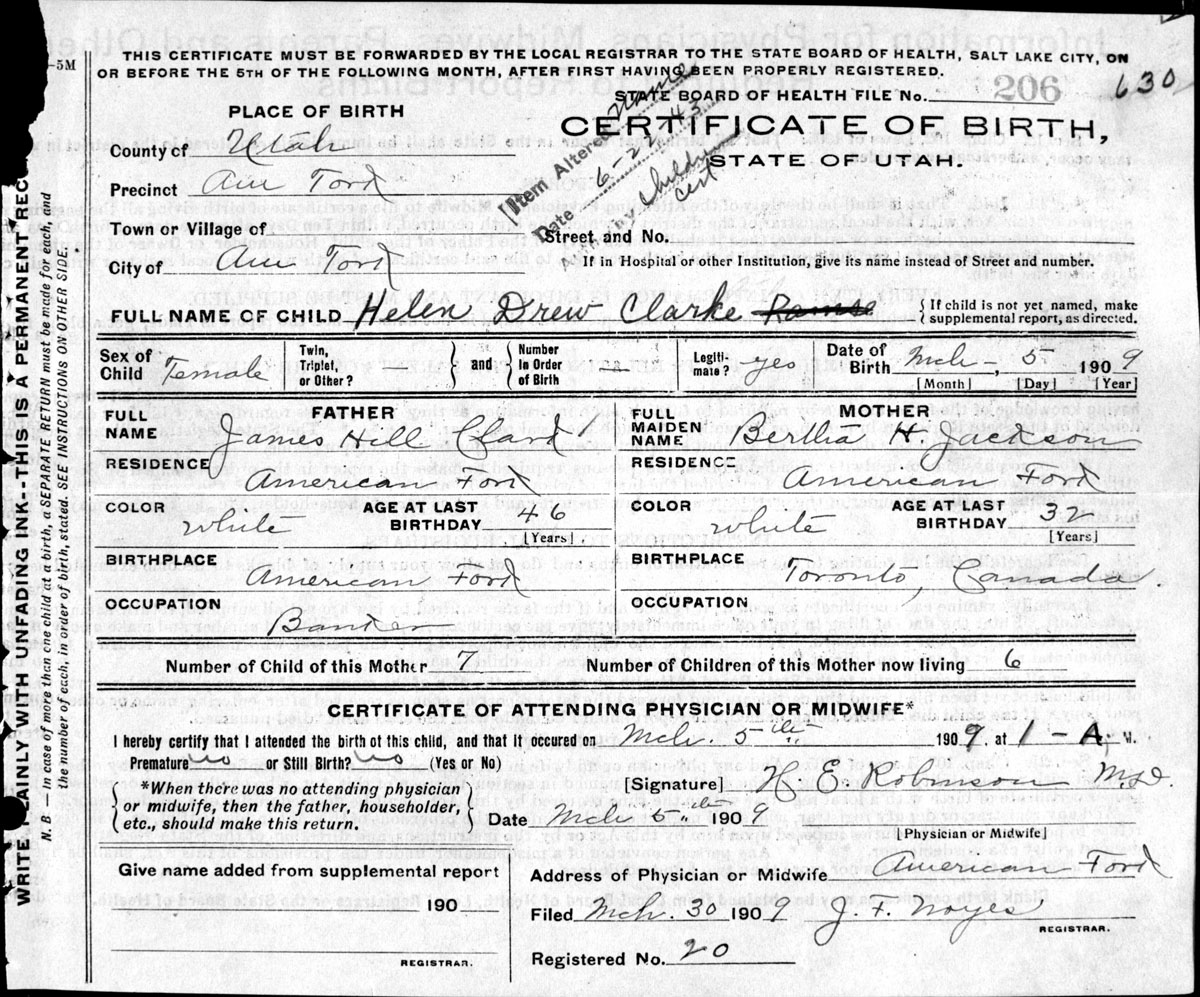 -5M
THIS CERTIFICATE MUST BE FORWARDED BY THE LOCAL REGISTRAR TO THE STATE BOARD OF HEALTH, SALT LAKE CITY, ON
OR BEFORE THE 5TH OF THE FOLLOWING MONTH, AFTER FIRST HAVING BEEN PROPERLY REGISTERED.
STATE BOARD OF HEALTH FILE No. 206 630
PLACE OF BIRTH
CERTIFICATE OF BIRTH,
STATE OF UTAH.
Item Altered Name
Date 6-2-43
Childs cert
County of Utah
Precinct Am Ford
Town or Village of
Street and No.
City of Am Ford
If in Hospital or other Institution, give its name instead of Street and number.
FULL NAME OF CHILD Helen Drew Clarke
{ If child is not yet named, make
supplemental report, as directed.
Sex of Child Female
Twin, Triplet, or Other?
and
Number in Order of Birth
Legiti- mate? yes
Date of Birth Mch - 5 1909
[Month] [Day] [Year]
FATHER
FULL NAME James Hill Clark
RESIDENCE American Ford
COLOR White
AGE AT LAST BIRTHDAY 46
[Years]
BIRTHPLACE American Ford
OCCUPATION Banker
MOTHER
FULL MAIDEN NAME Bertha H. Jackson
RESIDENCE American Ford
COLOR White
AGE AT LAST BIRTHDAY 32
[Years]
BIRTHPLACE Toronto, Canada.
OCCUPATION
Number of Child of this Mother 7 Number of Children of this Mother now living 6
CERTIFICATE OF ATTENDING PHYSICIAN OR MIDWIFE*
I hereby certify that I attended the birth of this child, and that it occured on Mch. 5th 1909. at 1-A. M.
Premature? No or Still Birth? No (Yes or No)
*When there was no attending physician
or midwife, then the father, householder,
etc., should make this return.
[Signature] H. E. Robinson M.D.
Date Mch 5th 1909
[Physician or Midwife]
Give name added from supplemental report
190
REGISTRAR.
Address of Physician or Midwife American Ford
Filed Mch. 30 1909 J. F. Noyes
REGISTRAR.
Registered No. 20
WRITE PLAINLY WITH UNFADING INK--THIS IS A PERMANENT REC
N. B.—In case of more than one child at a birth, a SEPARATE RETURN must be made for each, and
the number of each, in order of birth, stated. SEE INSTRUCTIONS ON OTHER SIDE.